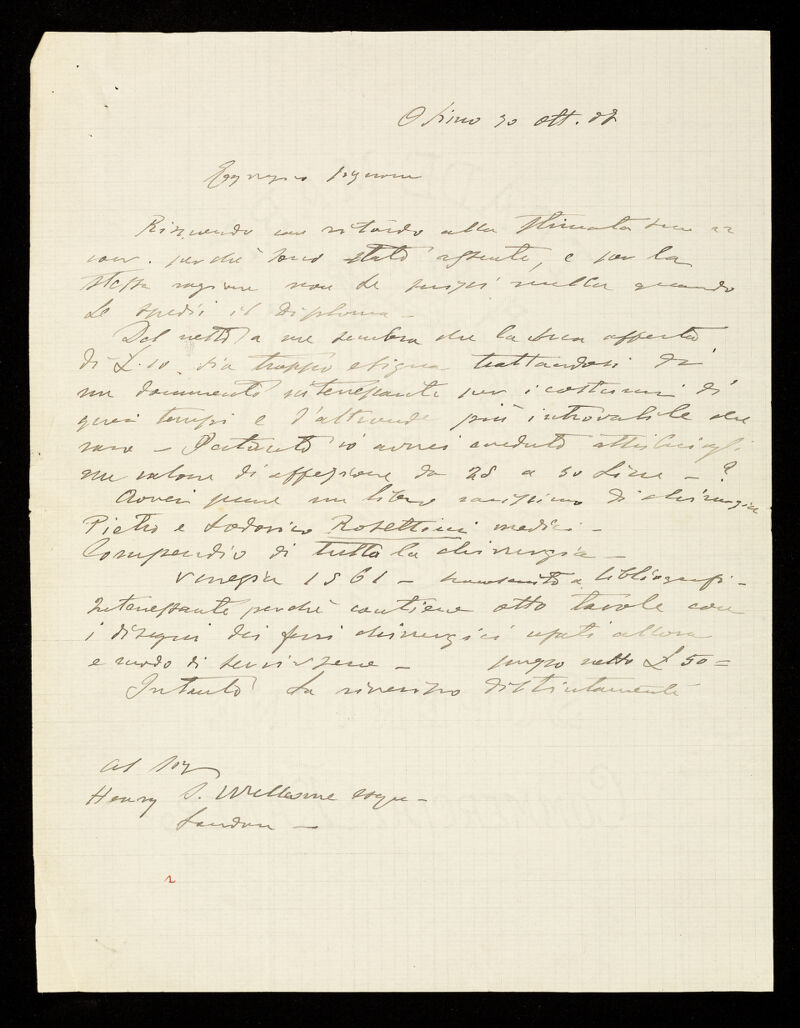 Osimo 30 ott.
Egregio Signore
Rispondo con ritardo alla stimata sua 22
corr. perchè sono stato assente, e per la
stessa ragione non Le scrissi nulla quando
Le spedii il diploma -
Del resto a me sembra che la Sua offerta
di £. 10 sia troppo esigua trattandosi di
un documento interessante per i costumi di
quei tempi e d'altronde più introvabile che
raro - Pertanto io avrei creduto attribuirgli
un valore di affezione da 25 a 30 Lire - ?
Avrei pure un libro rarissimo di chirurgia
Pietro e Lodovico Rosettini medici -
Compendio di tutta la chirurgia -
Venezia 1561 - a bibliografi -
Interessante perchè contiene otto tavole con
i disegni dei ferri chirurgici usati allora
e modo di servirsene - prezzo netto £ 50 =
Intanto La riverisco distintamente
al Sig
Henry S. Wellcome Esqu -
London -
2